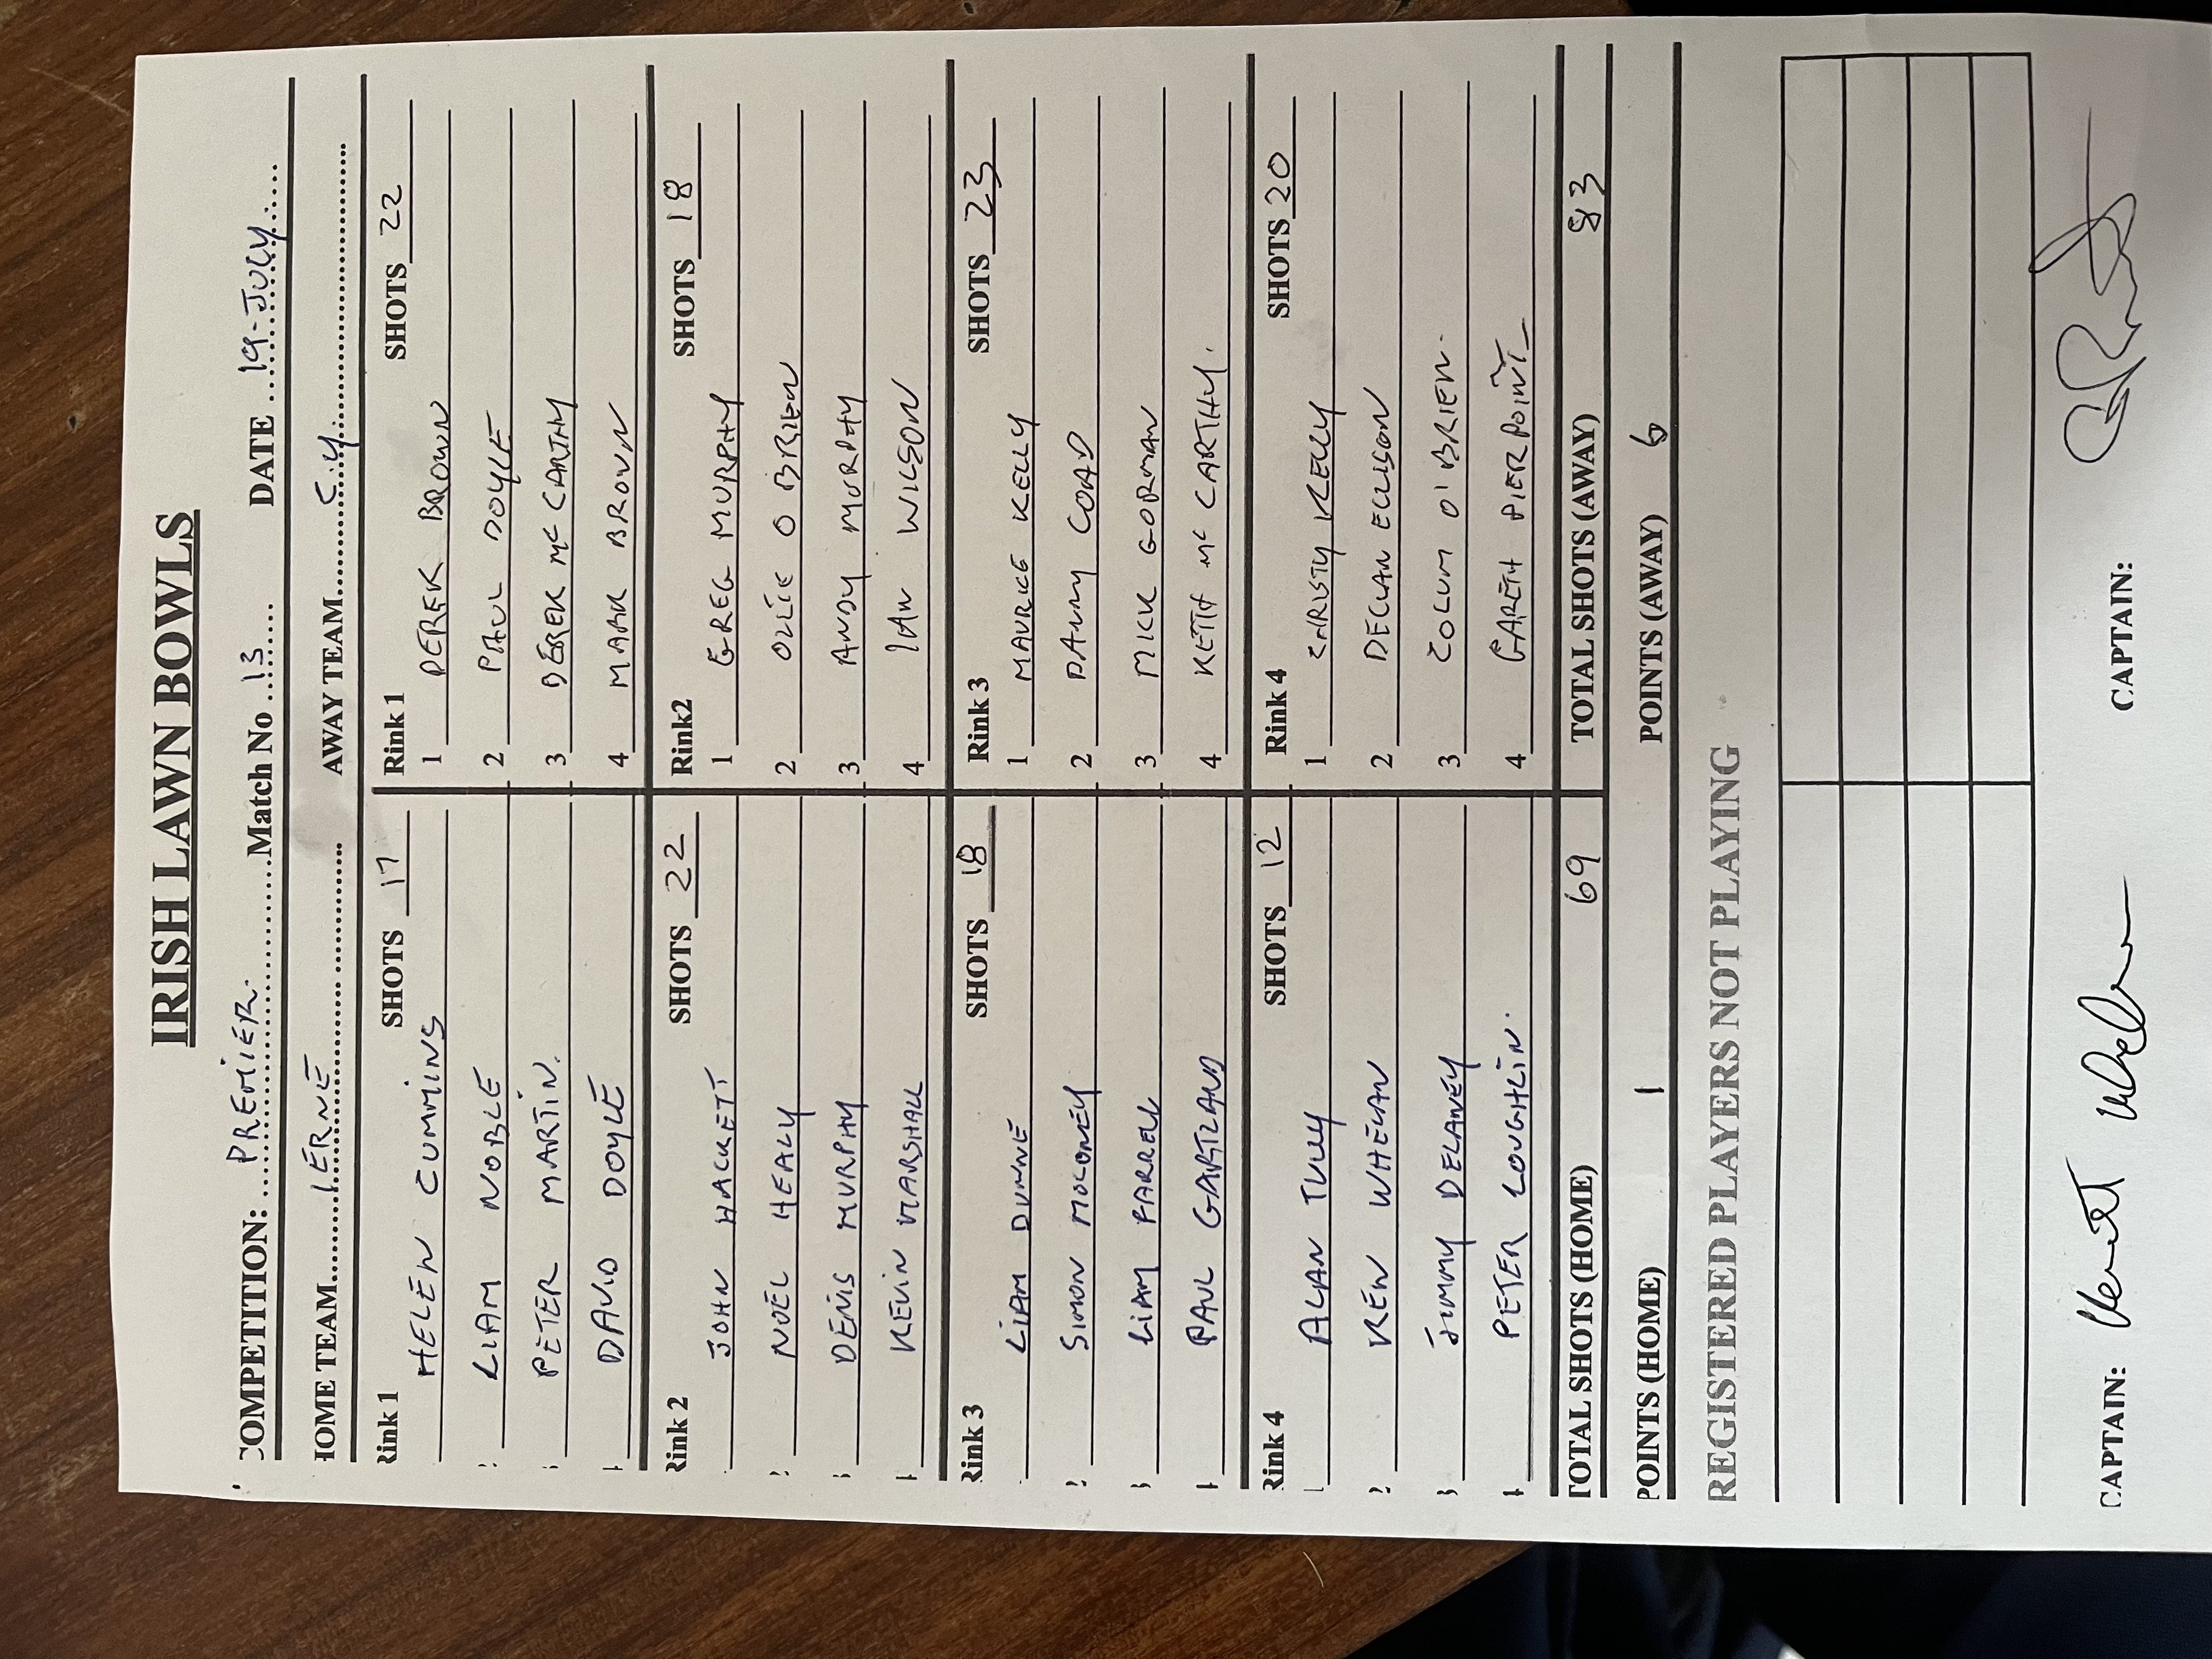 IRISH LAWN BOWLS
COMPETITION: PREMIER. Match No 13 DATE 19-JULY
HOME TEAM IERNE AWAY TEAM C.Y.
Rink 1 SHOTS 17 Rink 1 SHOTS 22
HELEN CUMMINS 1 DEREK BROWN
2 LIAM NOBLE 2 PAUL DOYLE
3 PETER MARTIN. 3 DEREK Mc CARTHY
4 DAVID DOYLE 4 MARK BROWN
Rink 2 SHOTS 22 Rink2 SHOTS 18
JOHN HACKETT 1 GREG MURPHY
2 NOEL HEALY 2 OLLIE O BRIEN
3 DENIS MURPHY 3 ANDY MURPHY
4 KEVIN MARSHALL 4 IAN WILSON
Rink 3 SHOTS 18 Rink 3 SHOTS 23
LIAM DUNNE 1 MAURICE KELLY
2 SIMON MOLONEY 2 DANNY COAD
3 LIAM FARRELL 3 MICK GORMAN
4 PAUL GARTLAND 4 KEITH Mc CARTHY.
Rink 4 SHOTS 12 Rink 4 SHOTS 20
1 ALAN TULLY 1 CHRISTY KELLY
2 KEN WHELAN 2 DECLAN ELLISON
3 JIMMY DELANEY 3 COLUM O'BRIEN.
4 PETER LOUGHLIN. 4 GARETH PIERPOINT
TOTAL SHOTS (HOME) 69 TOTAL SHOTS (AWAY) 83
POINTS (HOME) 1 POINTS (AWAY) 6
REGISTERED PLAYERS NOT PLAYING
CAPTAIN: CAPTAIN: